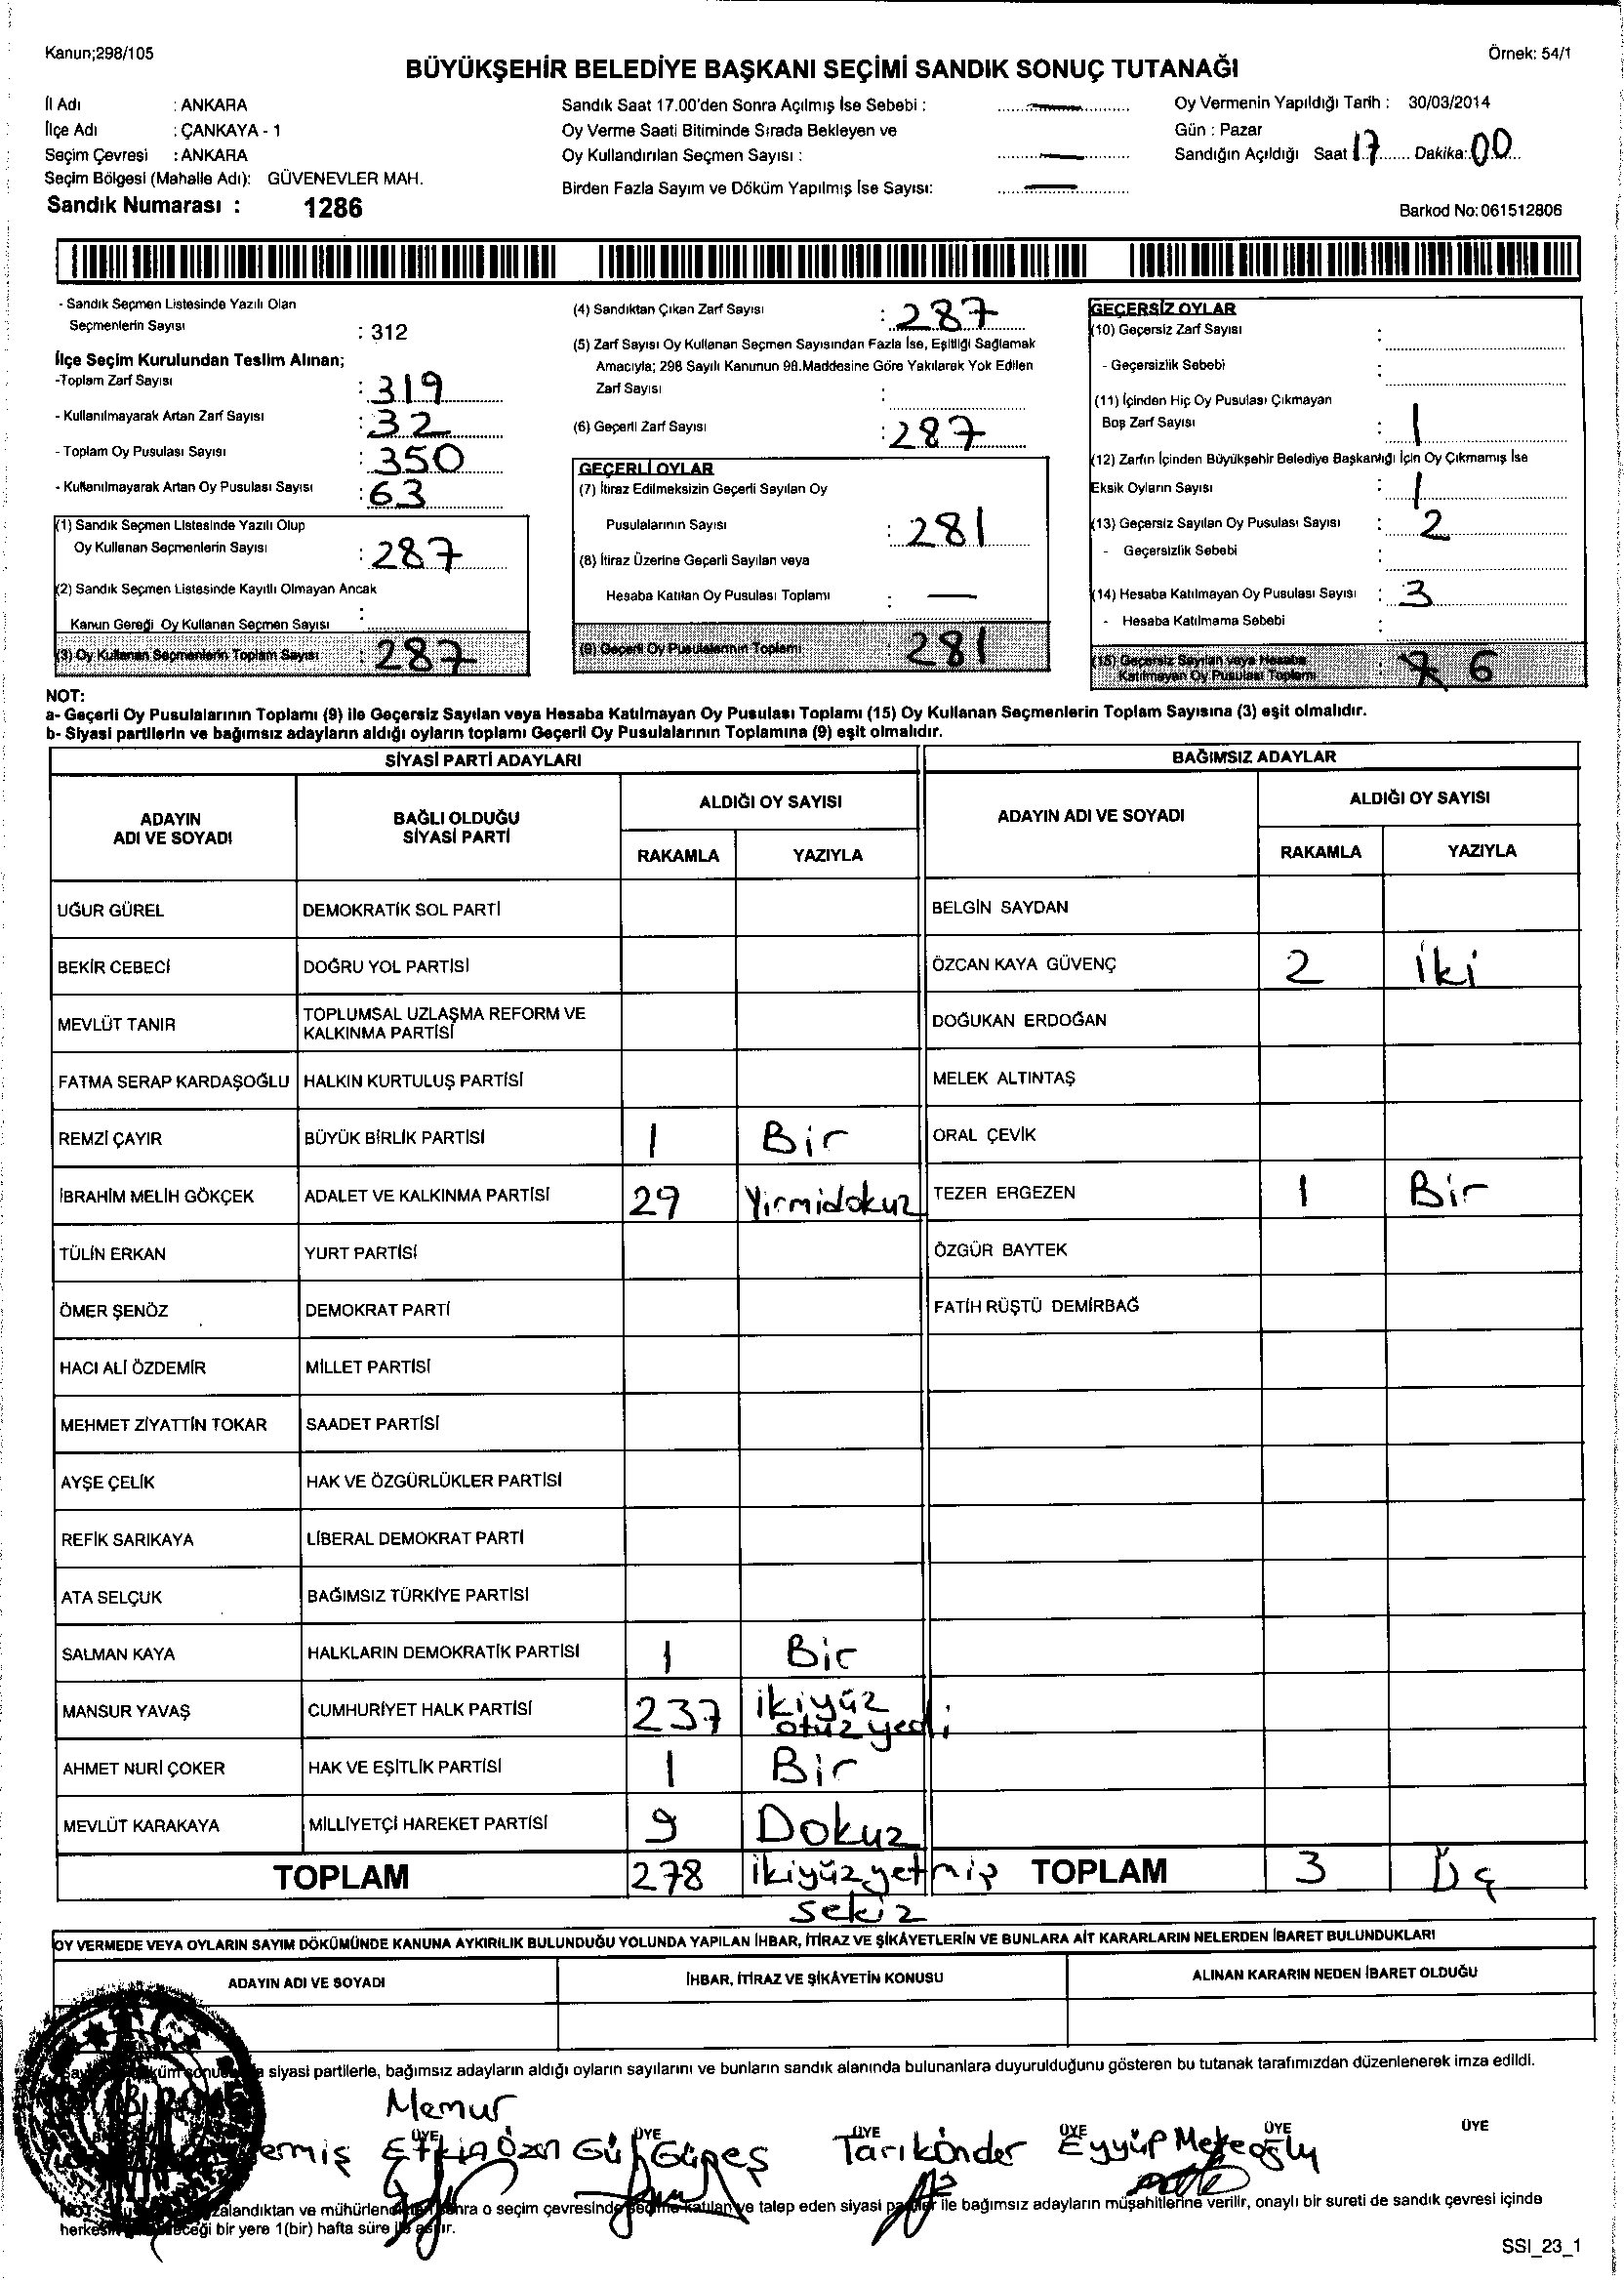 Kanun;298/105
Örnek: 54/1
BÜYÜKŞEHİR BELEDİYE BAŞKANI SEÇİMİ SANDIK SONUÇ TUTANAĞI
İl Adı : ANKARA
İlçe Adı : ÇANKAYA - 1
Seçim Çevresi : ANKARA
Seçim Bölgesi (Mahalle Adı): GÜVENEVLER MAH.
Sandık Numarası : 1286
Sandık Saat 17.00'den Sonra Açılmış İse Sebebi : —
Oy Verme Saati Bitiminde Sırada Bekleyen ve
Oy Kullandırılan Seçmen Sayısı : —
Birden Fazla Sayım ve Döküm Yapılmış İse Sayısı: —
Oy Vermenin Yapıldığı Tarih : 30/03/2014
Gün : Pazar
Sandığın Açıldığı Saat 17 Dakika: 00
Barkod No:061512806
- Sandık Seçmen Listesinde Yazılı Olan
Seçmenlerin Sayısı : 312
İlçe Seçim Kurulundan Teslim Alınan;
-Toplam Zarf Sayısı : 319
- Kullanılmayarak Artan Zarf Sayısı : 32
- Toplam Oy Pusulası Sayısı : 350
- Kullanılmayarak Artan Oy Pusulası Sayısı : 63
(1) Sandık Seçmen Listesinde Yazılı Olup
Oy Kullanan Seçmenlerin Sayısı : 287
(2) Sandık Seçmen Listesinde Kayıtlı Olmayan Ancak
Kanun Gereği Oy Kullanan Seçmen Sayısı :
(3) Oy Kullanan Seçmenlerin Toplam Sayısı : 287
(4) Sandıktan Çıkan Zarf Sayısı : 287
(5) Zarf Sayısı Oy Kullanan Seçmen Sayısından Fazla İse, Eşitliği Sağlamak
Amacıyla; 298 Sayılı Kanunun 98.Maddesine Göre Yakılarak Yok Edilen
Zarf Sayısı :
(6) Geçerli Zarf Sayısı : 287
GEÇERLİ OYLAR
(7) İtiraz Edilmeksizin Geçerli Sayılan Oy
Pusulalarının Sayısı : 281
(8) İtiraz Üzerine Geçerli Sayılan veya
Hesaba Katılan Oy Pusulası Toplamı : —
(9) Geçerli Oy Pusulalarının Toplamı 281
GEÇERSİZ OYLAR
(10) Geçersiz Zarf Sayısı :
- Geçersizlik Sebebi :
(11) İçinden Hiç Oy Pusulası Çıkmayan
Boş Zarf Sayısı : 1
(12) Zarfın İçinden Büyükşehir Belediye Başkanlığı İçin Oy Çıkmamış İse
Eksik Oyların Sayısı : 1
(13) Geçersiz Sayılan Oy Pusulası Sayısı : 2
- Geçersizlik Sebebi :
(14) Hesaba Katılmayan Oy Pusulası Sayısı : 3
- Hesaba Katılmama Sebebi :
(15) Geçersiz Sayılan veya Hesaba
Katılmayan Oy Pusulası Toplamı : 6
NOT:
a- Geçerli Oy Pusulalarının Toplamı (9) ile Geçersiz Sayılan veya Hesaba Katılmayan Oy Pusulası Toplamı (15) Oy Kullanan Seçmenlerin Toplam Sayısına (3) eşit olmalıdır.
b- Siyasi partilerin ve bağımsız adayların aldığı oyların toplamı Geçerli Oy Pusulalarının Toplamına (9) eşit olmalıdır.
SİYASİ PARTİ ADAYLARI
ADAYIN ADI VE SOYADI
BAĞLI OLDUĞU SİYASİ PARTİ
ALDIĞI OY SAYISI
RAKAMLA YAZIYLA
UĞUR GÜREL DEMOKRATİK SOL PARTİ
BEKİR CEBECİ DOĞRU YOL PARTİSİ
MEVLÜT TANIR TOPLUMSAL UZLAŞMA REFORM VE
KALKINMA PARTİSİ
FATMA SERAP KARDAŞOĞLU HALKIN KURTULUŞ PARTİSİ
REMZİ ÇAYIR BÜYÜK BİRLİK PARTİSİ 1 Bir
İBRAHİM MELİH GÖKÇEK ADALET VE KALKINMA PARTİSİ 29 Yirmidokuz
TÜLİN ERKAN YURT PARTİSİ
ÖMER ŞENÖZ DEMOKRAT PARTİ
HACI ALİ ÖZDEMİR MİLLET PARTİSİ
MEHMET ZİYATTİN TOKAR SAADET PARTİSİ
AYŞE ÇELİK HAK VE ÖZGÜRLÜKLER PARTİSİ
REFİK SARIKAYA LİBERAL DEMOKRAT PARTİ
ATA SELÇUK BAĞIMSIZ TÜRKİYE PARTİSİ
SALMAN KAYA HALKLARIN DEMOKRATİK PARTİSİ 1 Bir
MANSUR YAVAŞ CUMHURİYET HALK PARTİSİ 237 ikiyüz
otuz yedi
AHMET NURİ ÇOKER HAK VE EŞİTLİK PARTİSİ 1 Bir
MEVLÜT KARAKAYA MİLLİYETÇİ HAREKET PARTİSİ 9 Dokuz
TOPLAM 278 ikiyüzyetmiş
sekiz
BAĞIMSIZ ADAYLAR
ADAYIN ADI VE SOYADI
ALDIĞI OY SAYISI
RAKAMLA YAZIYLA
BELGİN SAYDAN
ÖZCAN KAYA GÜVENÇ 2 İki
DOĞUKAN ERDOĞAN
MELEK ALTINTAŞ
ORAL ÇEVİK
TEZER ERGEZEN 1 Bir
ÖZGÜR BAYTEK
FATİH RÜŞTÜ DEMİRBAĞ
TOPLAM 3 Üç
OY VERMEDE VEYA OYLARIN SAYIM DÖKÜMÜNDE KANUNA AYKIRILIK BULUNDUĞU YOLUNDA YAPILAN İHBAR, İTİRAZ VE ŞİKÂYETLERİN VE BUNLARA AİT KARARLARIN NELERDEN İBARET BULUNDUKLARI
ADAYIN ADI VE SOYADI İHBAR, İTİRAZ VE ŞİKÂYETİN KONUSU ALINAN KARARIN NEDEN İBARET OLDUĞU
siyasi partilerle, bağımsız adayların aldığı oyların sayılarını ve bunların sandık alanında bulunanlara duyurulduğunu gösteren bu tutanak tarafımızdan düzenlenerek imza edildi.
Memur
ÜYE ÜYE ÜYE ÜYE ÜYE ÜYE
Etkin Özen Gül Güneş Tarık Önder Eyyüp
o seçim çevresinde seçime katılan ve talep eden siyasi partiler ile bağımsız adayların müşahitlerine verilir, onaylı bir sureti de sandık çevresi içinde
bir yere 1(bir) hafta süre ile asılır.
SSI_23_1